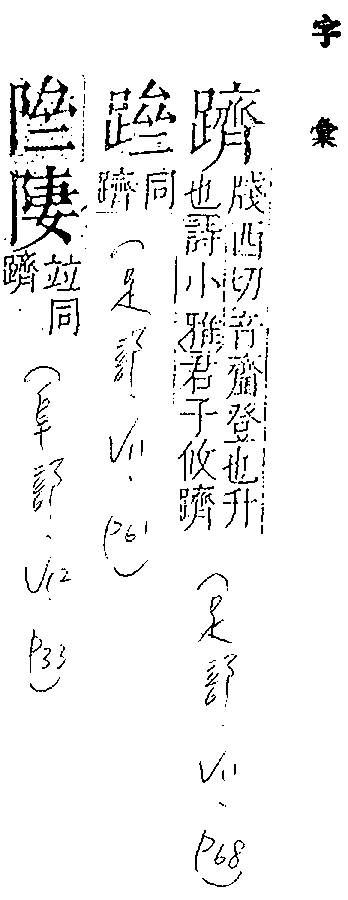 字彙
躋
牋西切音齎登也升
也詩小雅君子攸躋
(足部.V11.P68)
同
躋
(足部.V11.P61)
竝同
躋
(阜部.V12.P33)